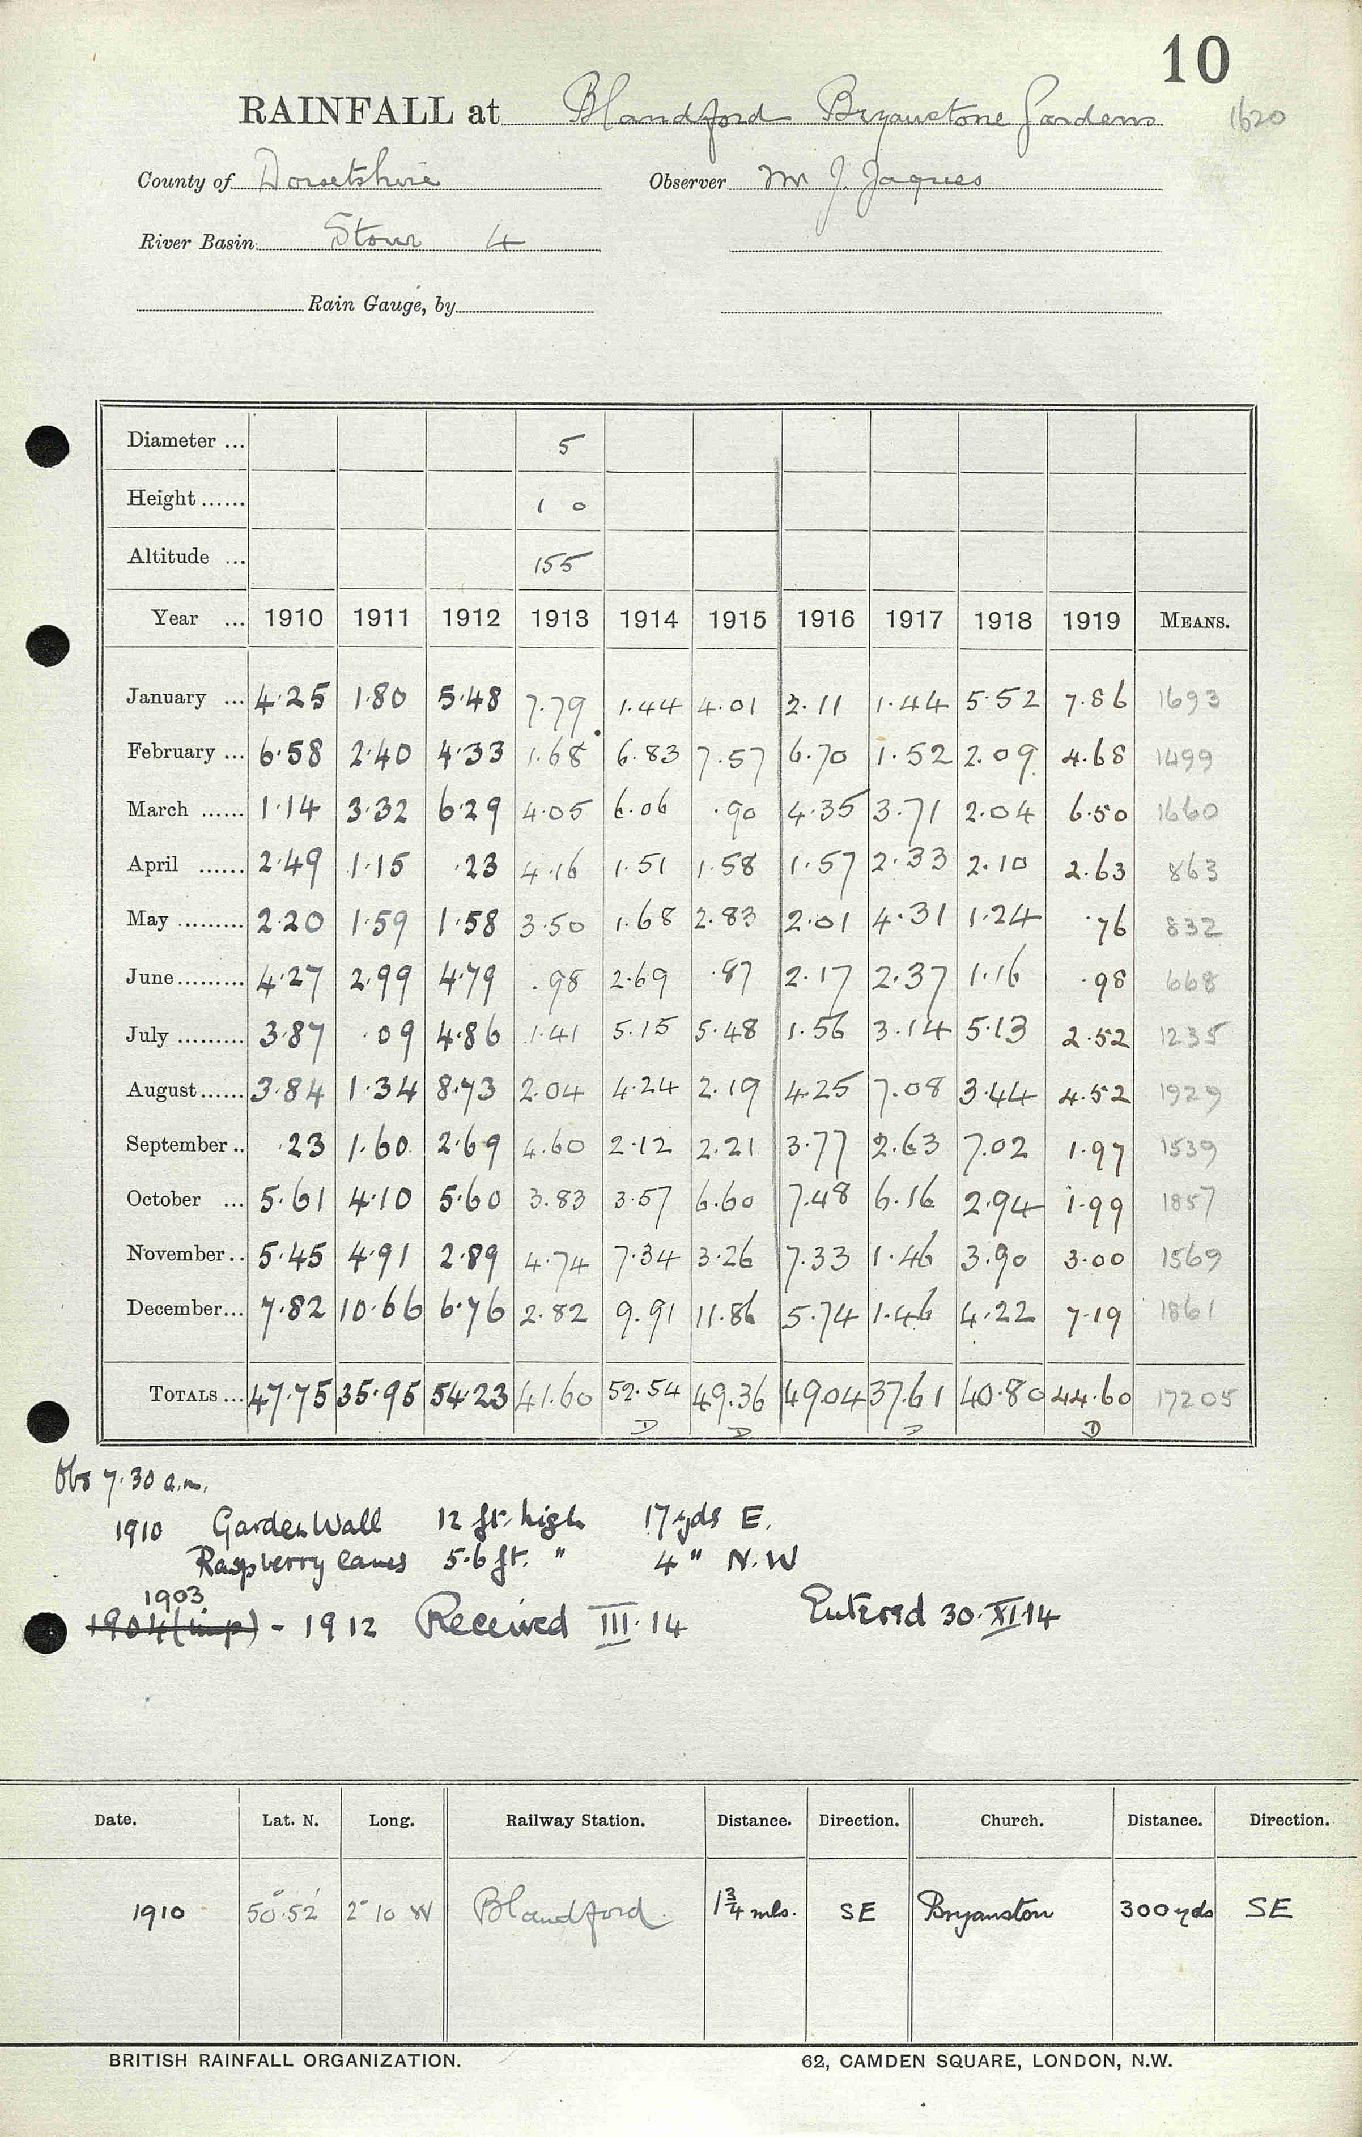 10
RAINFALL at Blandford Bryanstone Gardens 1620
County of Dorsetshire Observer Mr J. Jaques
River Basin Stour 4
Rain Gauge, by
Diameter ... 5
Height ...... 1 0
Altitude ... 155
Year ... 1910 1911 1912 1913 1914 1915 1916 1917 1918 1919 MEANS.
January ... 4.25 1.80 5.48 7.79 1.44 4.01 2.11 1.44 5.52 7.86 1693
February ... 6.58 2.40 4.33 1.68 6.83 7.57 6.70 1.52 2.09 4.68 1499
March ...... 1.14 3.32 6.29 4.05 6.06 .90 4.35 3.71 2.04 6.50 1660
April ...... 2.49 1.15 .23 4.16 1.51 1.58 1.57 2.33 2.10 2.63 863
May ......... 2.20 1.59 1.58 3.50 1.68 2.83 2.01 4.31 1.24 .76 832
June ......... 4.27 2.99 4.79 .98 2.69 .87 2.17 2.37 1.16 .98 668
July ......... 3.87 .09 4.86 1.41 5.15 5.48 1.56 3.14 5.13 2.52 1235
August ...... 3.84 1.34 8.73 2.04 4.24 2.19 4.25 7.08 3.44 4.52 1929
September .. .23 1.60 2.69 4.60 2.12 2.21 3.77 2.63 7.02 1.97 1539
October ... 5.61 4.10 5.60 3.83 3.57 6.60 7.48 6.16 2.94 1.99 1857
November .. 5.45 4.91 2.89 4.74 7.34 3.26 7.33 1.46 3.90 3.00 1569
December ... 7.82 10.66 6.76 2.82 9.91 11.86 5.74 1.46 4.22 7.19 1861
TOTALS ... 47.75 35.95 54.23 41.60 52.54 49.36 49.04 37.61 40.80 44.60 17205
D D D D
Obs 7.30 a.m.
1910 Garden Wall 12 ft. high 17 yds E.
Raspberry canes 5.6 ft. " 4 " N.W
1903
1904 (imp) - 1912 Received III.14 Entered 30.XI.14
Date. Lat. N. Long. Railway Station. Distance. Direction. Church. Distance. Direction.
1910 50°.52' 2° 10 W Blandford 1¾ mls. SE Bryanston 300 yds SE
BRITISH RAINFALL ORGANIZATION. 62, CAMDEN SQUARE, LONDON, N.W.